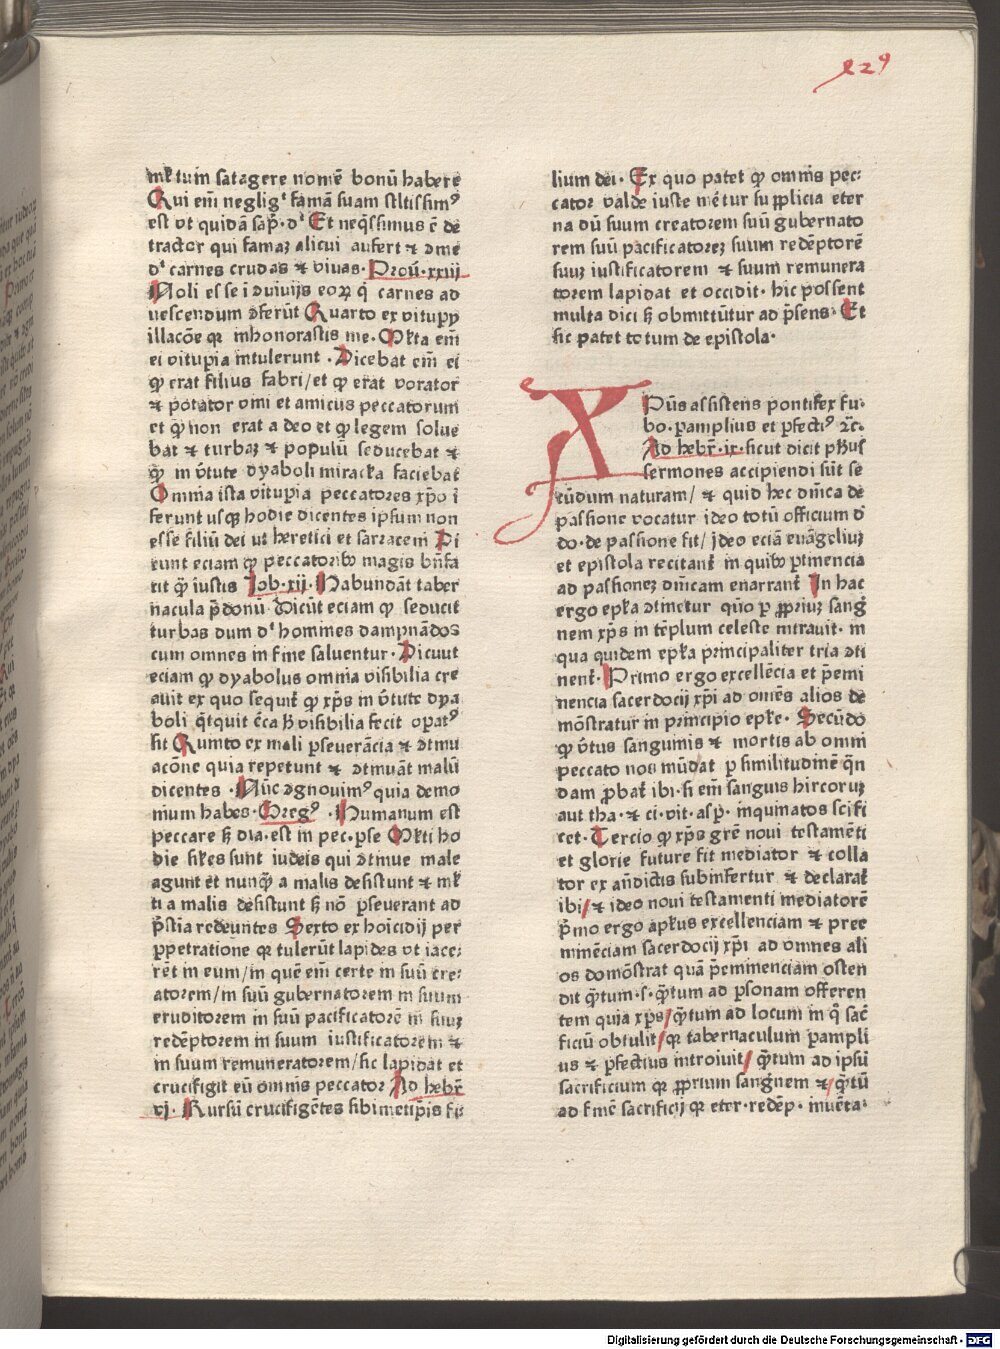 229
mĺtum satagere nomē bonū habere
Qui em̄ negligᵗ famā suam stltissimꝰ
est vt quidā sap̄. dᵗ Et neq̄ssimus ē de
tractor qui famaꝫ alicui aufert ⁊ ꝯme
dᵗ carnes crudas ⁊ viuas. Prou̅. xxiij
Noli esse ī ꝯuiuijs eoꝝ q̇ carnes ad
vescendum ꝯferūt Quarto ex vitupꝑ
illacōe qꝛ inhonorastis me. Mĺta em̄
ei vitupia intulerunt. Dicebāt em̄ ei
ꝙ erat filius fabri/et ꝙ erat vorator
⁊ potator vini et amicus peccatorum
et ꝙ non erat a deo et ꝙ legem solue
bat ⁊ turbaꝫ ⁊ populū seducebat ⁊
ꝙ in v̄tute dyaboli miracĺa faciebat
Omnia ista vitupia peccatores xp̄o ī
ferunt usqꝫ hodie dicentes ipsum non
esse filiū dei ut heretici et sarraceni Di
cunt eciam ꝙ peccatoribꝰ magis bn̄fa
cit q̄ iustis Job. xij. Habundāt taber
nacula p̄donū. Dicūt eciam ꝙ seducit
turbas dum dᵗ homines dampnādos
cum omnes in fine saluentur. Dicuut
eciam ꝙ dyabolus omnia visibilia cre
auit ex quo sequiť ꝙ xp̄s in v̄tute dya
boli q̄tquit ēca ꝫ visibilia fecit opatꝰ
sit Quinto ex mali pseuerācia ⁊ ꝯtinu
acōne quia repetunt ⁊ ꝯtinuāt malū
dicentes. Nūc ꝯgnouimꝰ quia demo
nium habes. Gregꝰ. Humanum est
peccare ꝫ dia. est in pec. pse Mĺti ho
die siĺes sunt iudeis qui ꝯtinue male
agunt et nunq̄ a malis desistunt ⁊ mĺ
ti a malis desistunt ꝫ nō pseuerant ad
p̄stia redeuntes Sexto ex hoīcidij per
ppetratione qꝛ tulerūt lapides vt iace
rēt in eum/in quē em̄ certe in suū cre
atorem/in suū gubernatorem in suum
eruditorem in suū pacificatorē in suuꝫ
redēptorem in suum iustificatorem ⁊
in suum remuneratorem/sic lapidat et
crucifigit eū omnis peccator Ad hebr̄
vj. Rursū crucifigētes sibimetip̄is fi
lium dei. Ex quo patet ꝙ omnis pec
cator valde iuste mētur supplicia eter
na dū suum creatorem suū gubernato
rem suū pacificatoreꝫ suum redēptorē
suuꝫ iustificatorem ⁊ suum remunera
torem lapidat et occidit. hic possent
multa dici ꝫ obmittūtur ad p̄sens. Et
sic patet totum de epistola.
Xpūs assistens pontifex fu
bo. pamplius et pfectiꝰ ⁊c.
Ad hebr̄. ix. sicut dicit pħus
sermones accipiendi sūt se
cūdum naturam/ ⁊ quid hec dn̄ica de
passione vocatur ideo totū officium d̄
do. de passione fit/ ideo eciā euāgeliuꝫ
et epistola recitanť in quibꝰ ptinencia
ad passioneꝫ dn̄icam enarranť In hac
ergo epĺa ꝯtinetur quō p ppriuꝫ sang̃
nem xp̄s in tēplum celeste intrauit. in
qua quidem epĺa principaliter tria ꝯti
nenť. Primo ergo excellēcia et p̄emi
nencia sacerdocij xp̄i ad omēs alios de
mōstratur in principio epĺe. Secūdo
ꝙ v̄tus sanguinis ⁊ mortis ab omni
peccato nos mūdat p similitudinē qn̄
dam pbať ibi. si em̄ sanguis hircoruꝫ
aut tha. ⁊ ci. vit. asp̄. inquinatos scifi
cet. Tercio ꝙ xp̄s grē noui testamēti
et glorie future fit mediator ⁊ colla
tor ex an̄dictis subinfertur ⁊ declarať
ibi/ ⁊ ideo noui testamenti mediatorē
p̄mo ergo apĺus excellenciam ⁊ pree
minēciam sacerdocij xp̄i ad omnes ali
os domōstrat quā p̄eminenciam osten
dit q̄tum. s. q̄tum ad psonam offeren
tem quia xp̄s/q̄tum ad locum in q̇ sac̄
ficiū obtulit/qꝛ tabernaculum pampli
us ⁊ pfectius introiuit/ q̄tum ad ipsū
sacrificium qꝛ pprium sang̃nem ⁊/q̄tū
ad finē sacrificij qꝛ eter. redēp. inuēta.
Digitalisierung gefördert durch die Deutsche Forschungsgemeinschaft - DFG